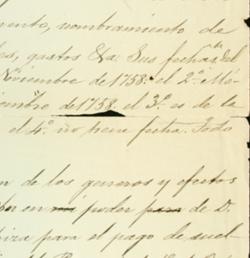 ento, nombramiento de
es, gastos &a. Sus fechas del
Noviembre de 1758: el 2.º
de 1758. el 3.º es de la
el 4.º no tiene fecha. Todo
n de los generos y efectos
en poder de D.
para el pago de suel